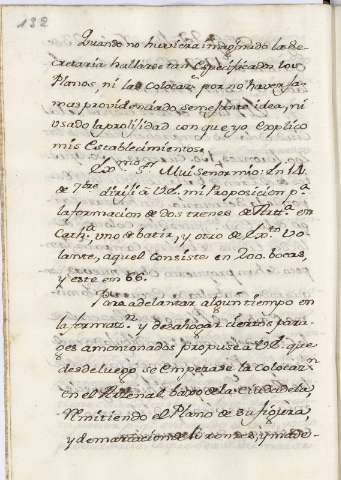 132
Quando no huviera imaginado la Se-
cretaria hallarse tan Especificados los
Planos, ni la Colocacn por no haver ja-
mas providenciado semejante idea, ni
usado la prolijidad con que yo explico
mis Establecimientos.
Exmo Sor Mui señor mio: En 14
de 7bre dirijí à VE. mi Proposicion pa
la formacion de dos trenes de Arta en
Catha, uno de batir, y otro de Exto Vo
lante, aquel consiste en 200. bocas,
y este en 66.
Para adelantar algun tiempo en
la formacn y desahogar ciertos para-
ges amontonados propuse à VE. que
desde luego se empezase la colocacn
en el Arsenal baxo de la Ciudadela,
Remitiendo el Plano de su figura,
y demarcacion de